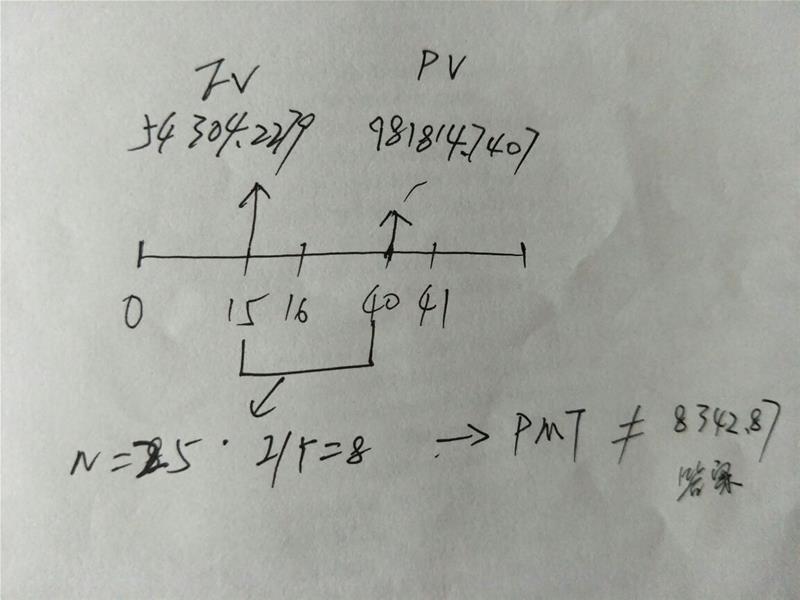 FV PV
54304.2279 981814.7407
0 15 16 40 41
N=25 I/Y=8 → PMT ≠ 8342.87
答案